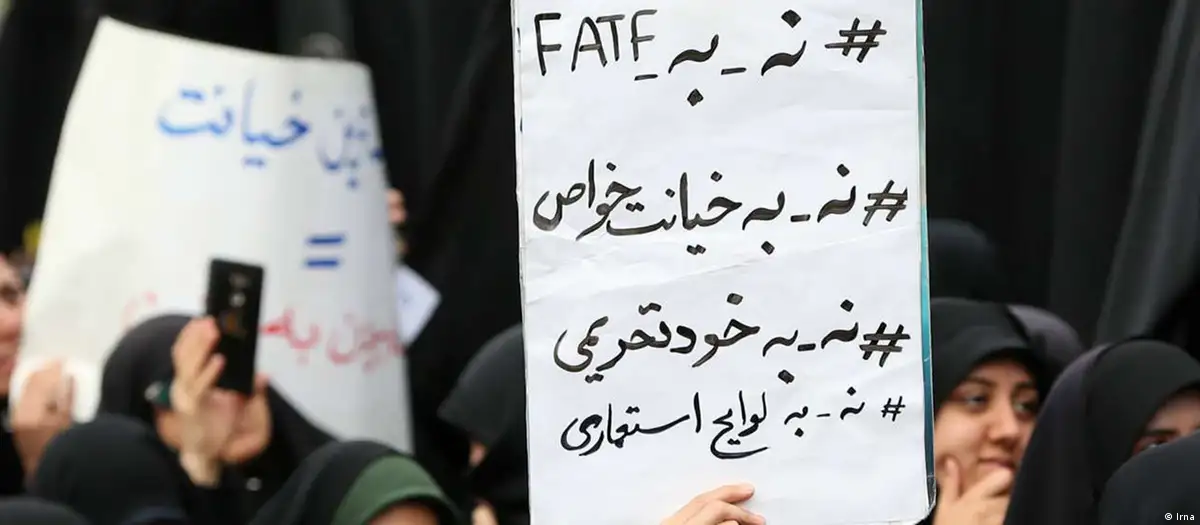 # نه_به_FATF
# نه_به خیانت خواص
# نه_به خود تحریمی
# نه_به لوایح استعماری
خیانت
=
© Irna